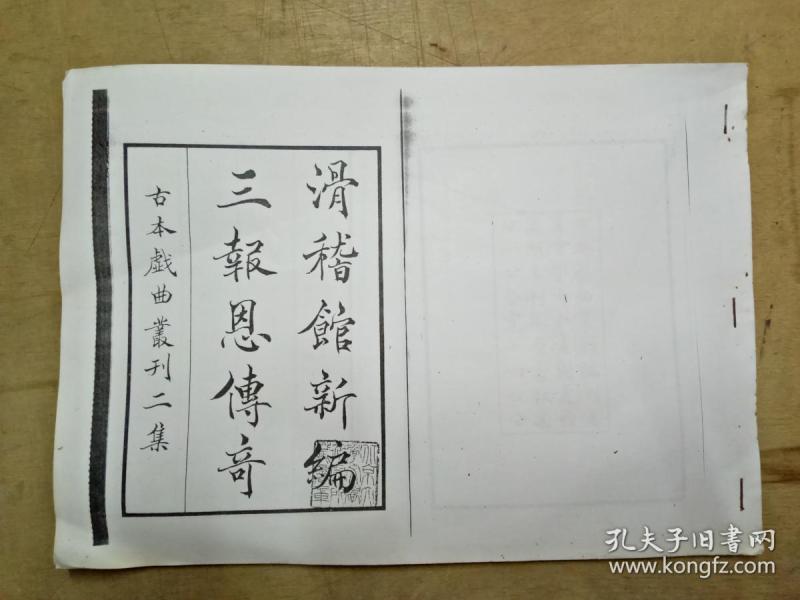 滑稽館新編
三報恩傳奇
古本戲曲叢刊二集
孔夫子旧书网
www.kongfz.com